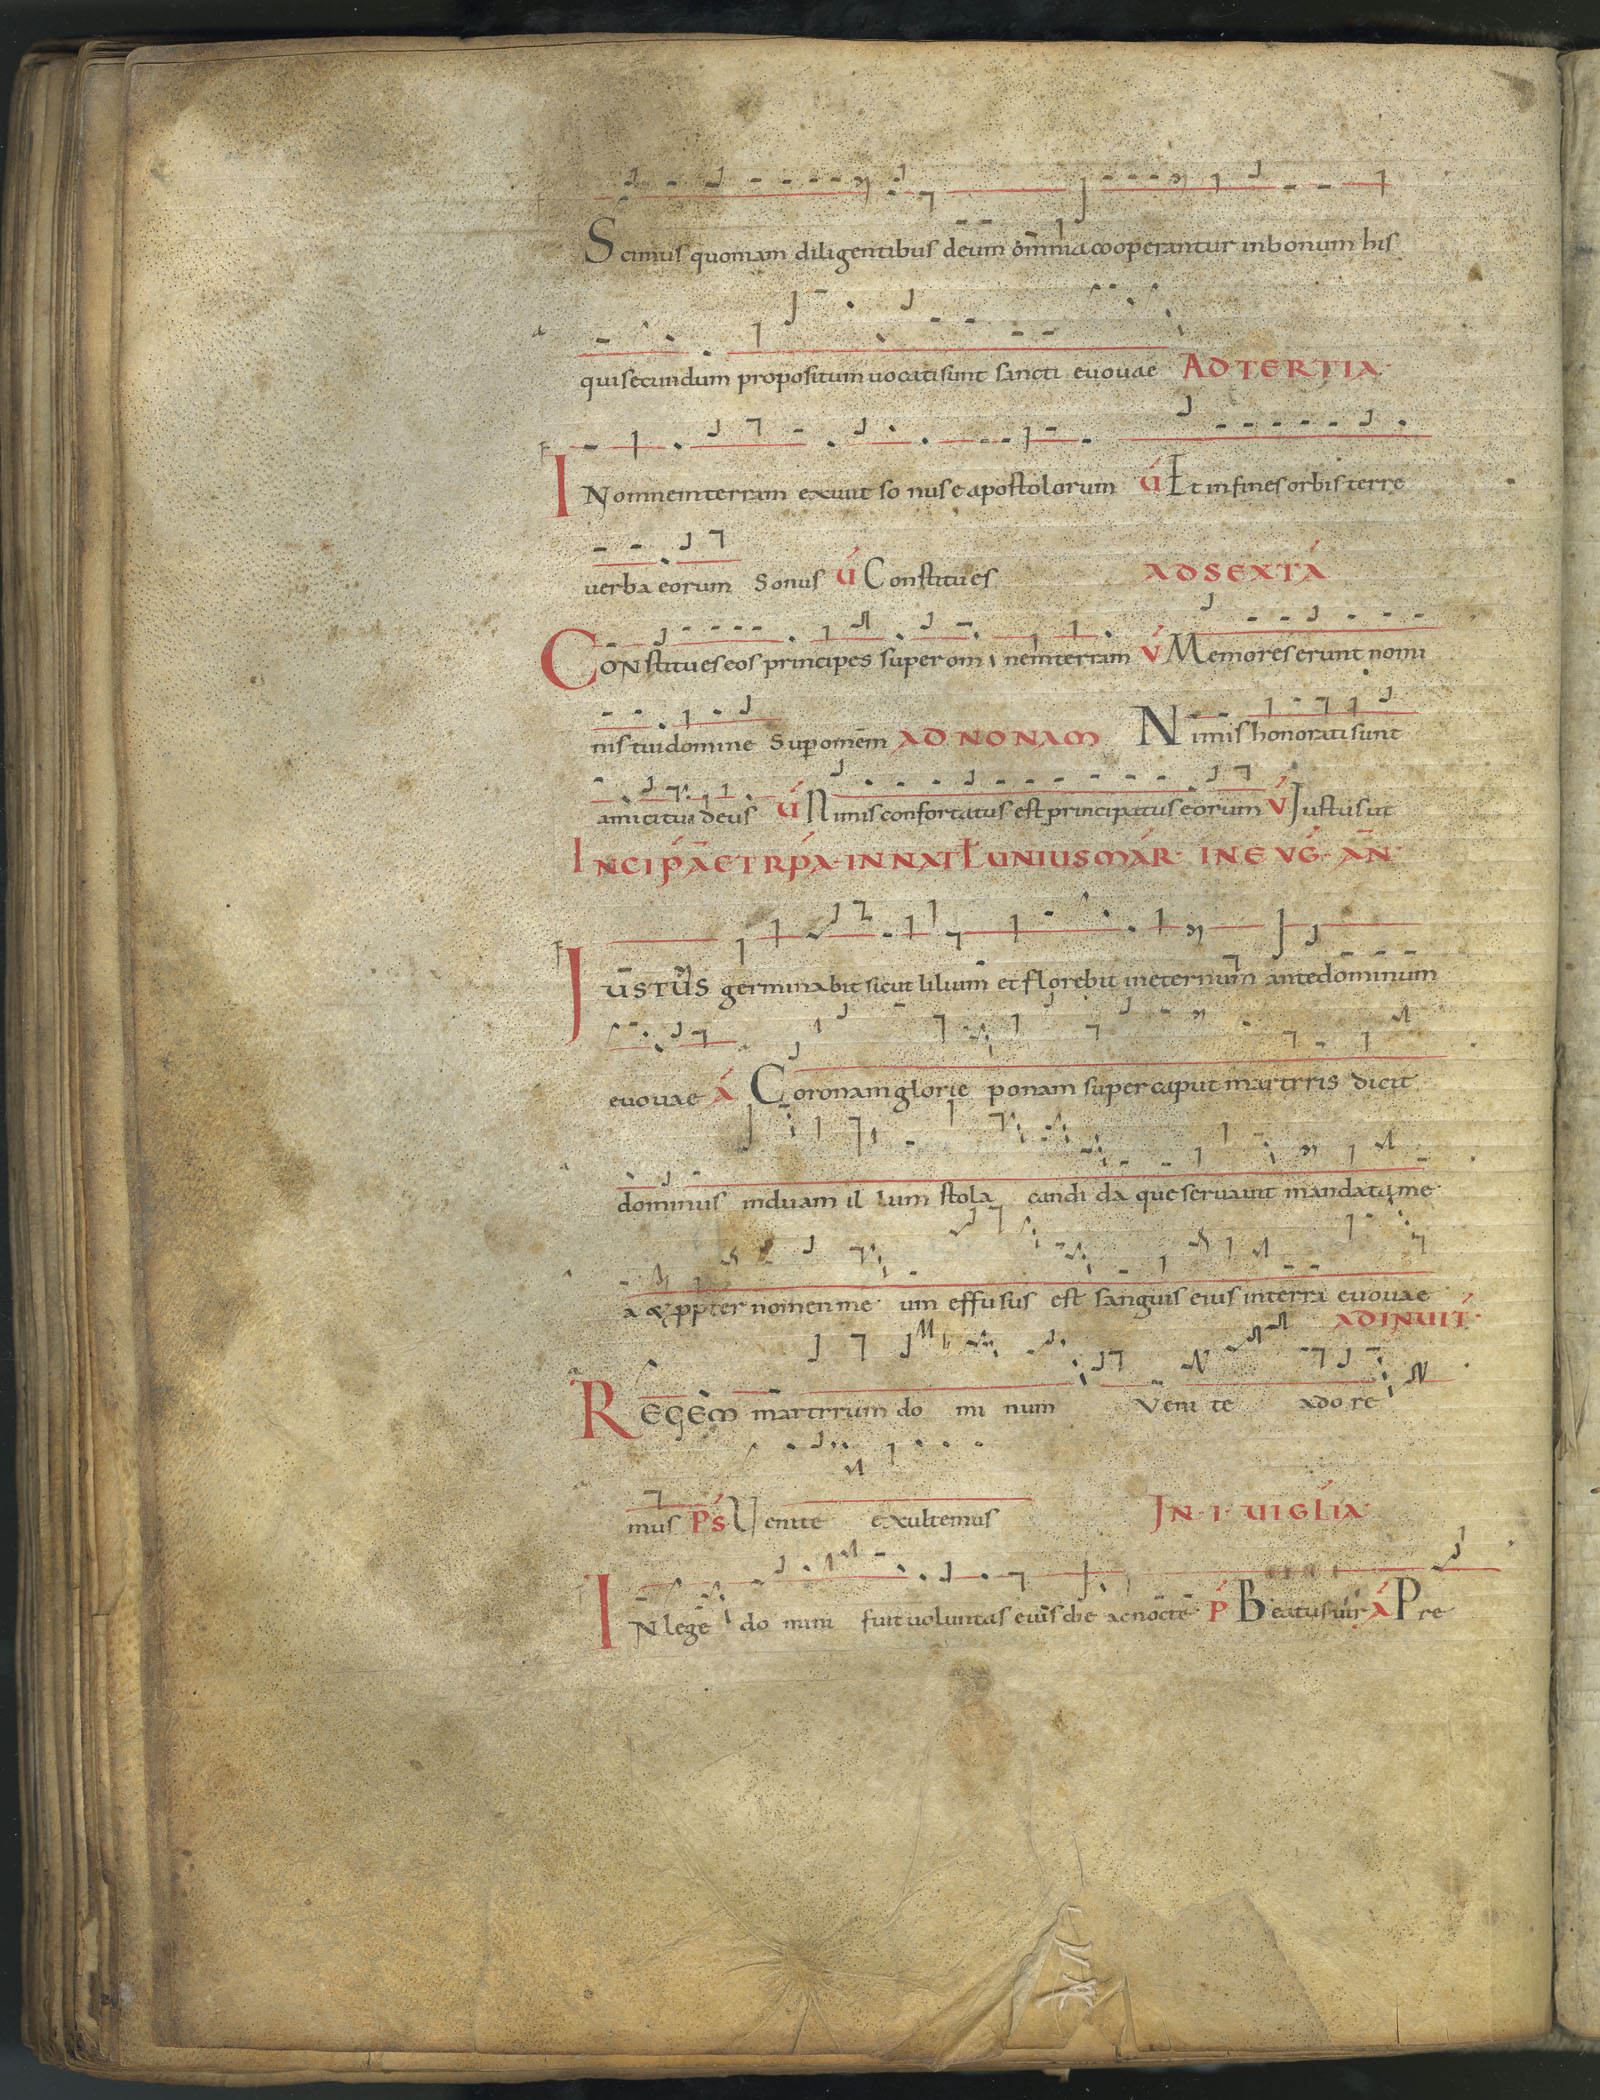 Scimus quoniam diligentibus deum om̄nia cooperantur inbonum his
qui secundum propositum uocati sunt sancti euouae ADTERTIA·
f IN omnem terram exiuit so nus e apostolorum V́ Et infines orbis terre
uerba eorum Sonus V́ Constitues ADSEXTĀ
CONstitues eos principes super om nem terram V́ Memores erunt nomi
nis tui domine Sup omēm AD NONAM Nimis honorati sunt
amici tui deus V́ Nimis confortatus est principatus eorum V́ Justus ut
INCIP̄ ĀETRP̄A·INNAT̄ UNIUSMĀR· INEVḠ· ĀN·
f JUSTUS germinabit sicut lilium et florebit ineternum ante dominum
euouae Á Coronam glorie ponam super caput martyris dicit
dominus induam il lum stola candi da que seruauit mandata me
a & ppter nomen me um effusus est sanguis eius interra euouae
ADINUIT̄·
REGEM martyrum do mi num Veni te adore
mus Ps̄ Uenite exultemus IN·I·UIGL̄IA·
IN lege do mini fuit uoluntas eius die acnocte P̄ Beatus uir Á Pre